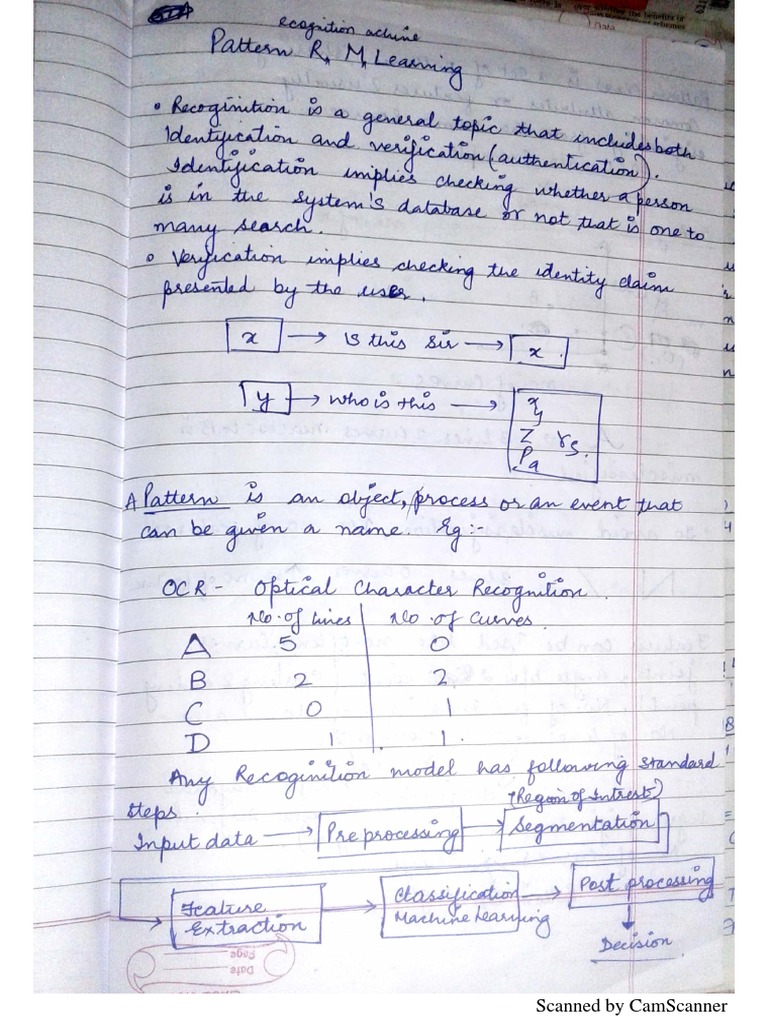 ecognition achine
Pattern R, M, Learning
• Recoginition is a general topic that includes both
Identification and verification (authentication).
Identification implies checking whether a person
is in the system's database or not that is one to
many search.
• Verification implies checking the identity claim
presented by the user.
x → is this sir → x
y → who is this →
Z
Pa
A Pattern is an object, process or an event that
can be given a name. Eg :-
OCR - Optical Character Recognition.
No. of lines No. of curves.
A 5 0
B 2 2
C 0 1
D 1 1
Any Recoginition model has following standard
steps.
(Region of Intrest)
Input data → Pre processing → Segmentation
Feature Extraction → Classification Machine Learning → Post processing
Decision
Page
Date
Scanned by CamScanner